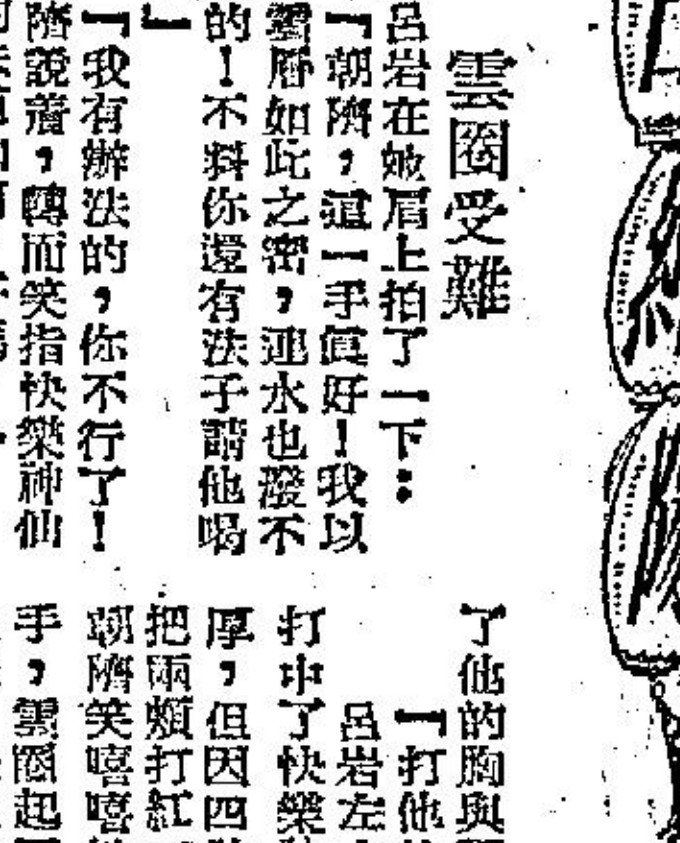 雲圈受難
呂岩在她肩上拍了一下：
「朝隋，這一手眞好！我以
雲層如此之密，連水也潑不
的！不料你還有法子請他喝
」
「我有辦法的，你不行了！
隋說着，轉而笑指快樂神仙
了他的胸與
「打他
呂岩左
打中了快樂
厚，但因四
把兩頰打紅
朝隋笑嘻嘻
手，雲圈起